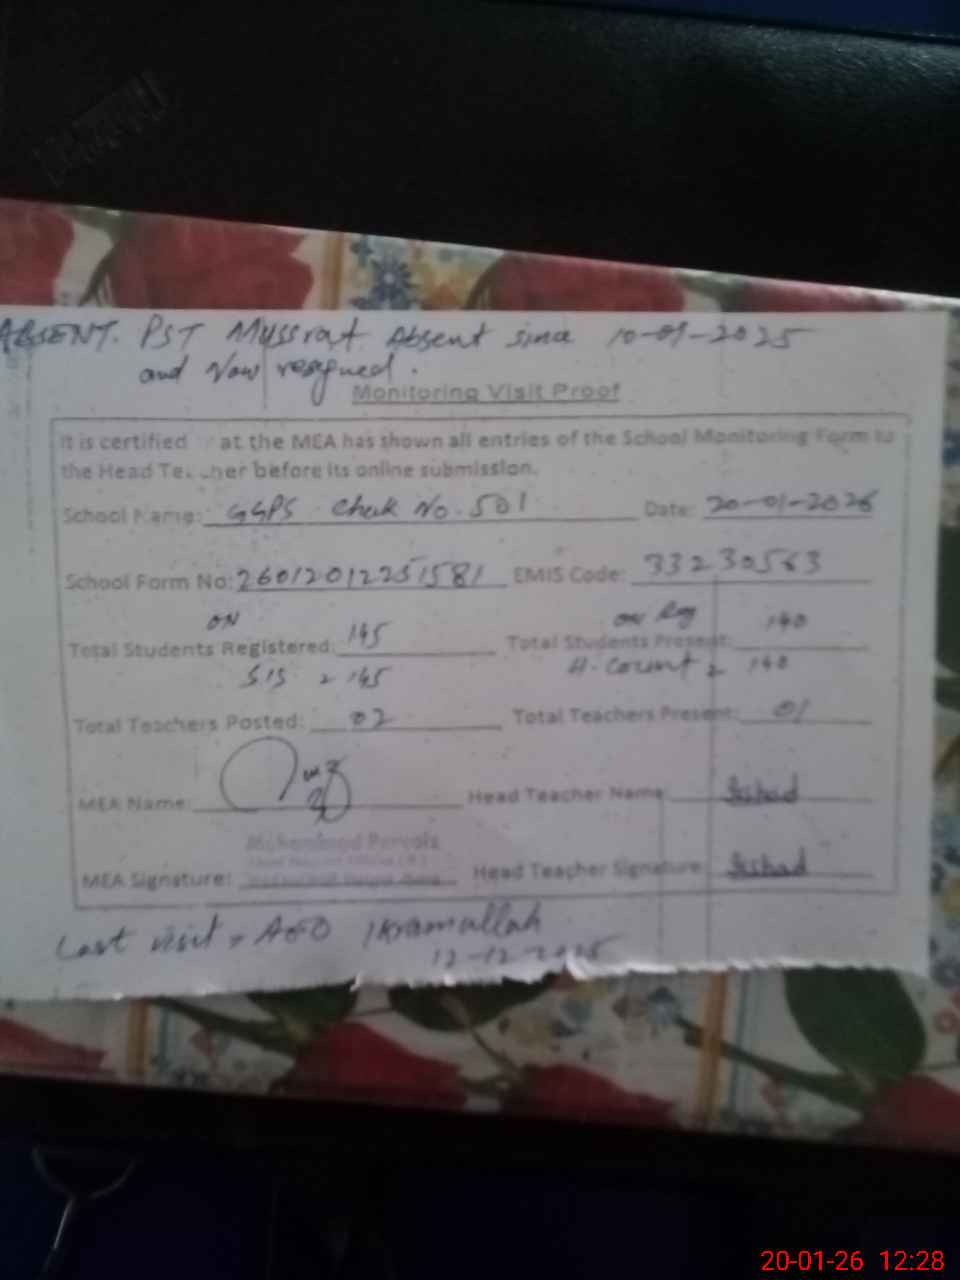 ABSENT. PST Mussrat Absent since 10-01-2025
and Now resigned.
Monitoring Visit Proof
It is certified at the MEA has shown all entries of the School Monitoring Form to
the Head Te..cher before its online submission.
School Name: GGPS Chak No. 501 Date: 20-01-2026
School Form No: 26012012251581 EMIS Code: 33230563
ON on Reg
Total Students Registered: 145 Total Students Present: 140
SIS = 145 H. Count = 140
Total Teachers Posted: 02 Total Teachers Present: 01
MEA Name: Head Teacher Name: Irshad
Muhammad Pervaiz
MEA Signature: Head Teacher Signature: Irshad
Last visit = AEO Ikramullah
12-12-2025
20-01-26 12:28